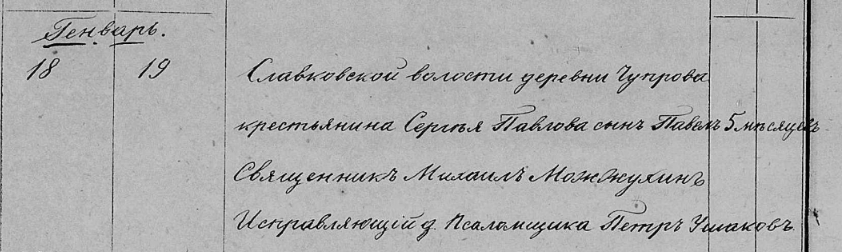 Генварь.
18 19 Славковской волости деревни Чупрова
крестьянина Сергѣя Павлова сынъ Павелъ 5 мѣсяцевъ
Священникъ Михаилъ Можжухинъ
Исправляющій д. Псаломщика Петръ Ушаковъ.